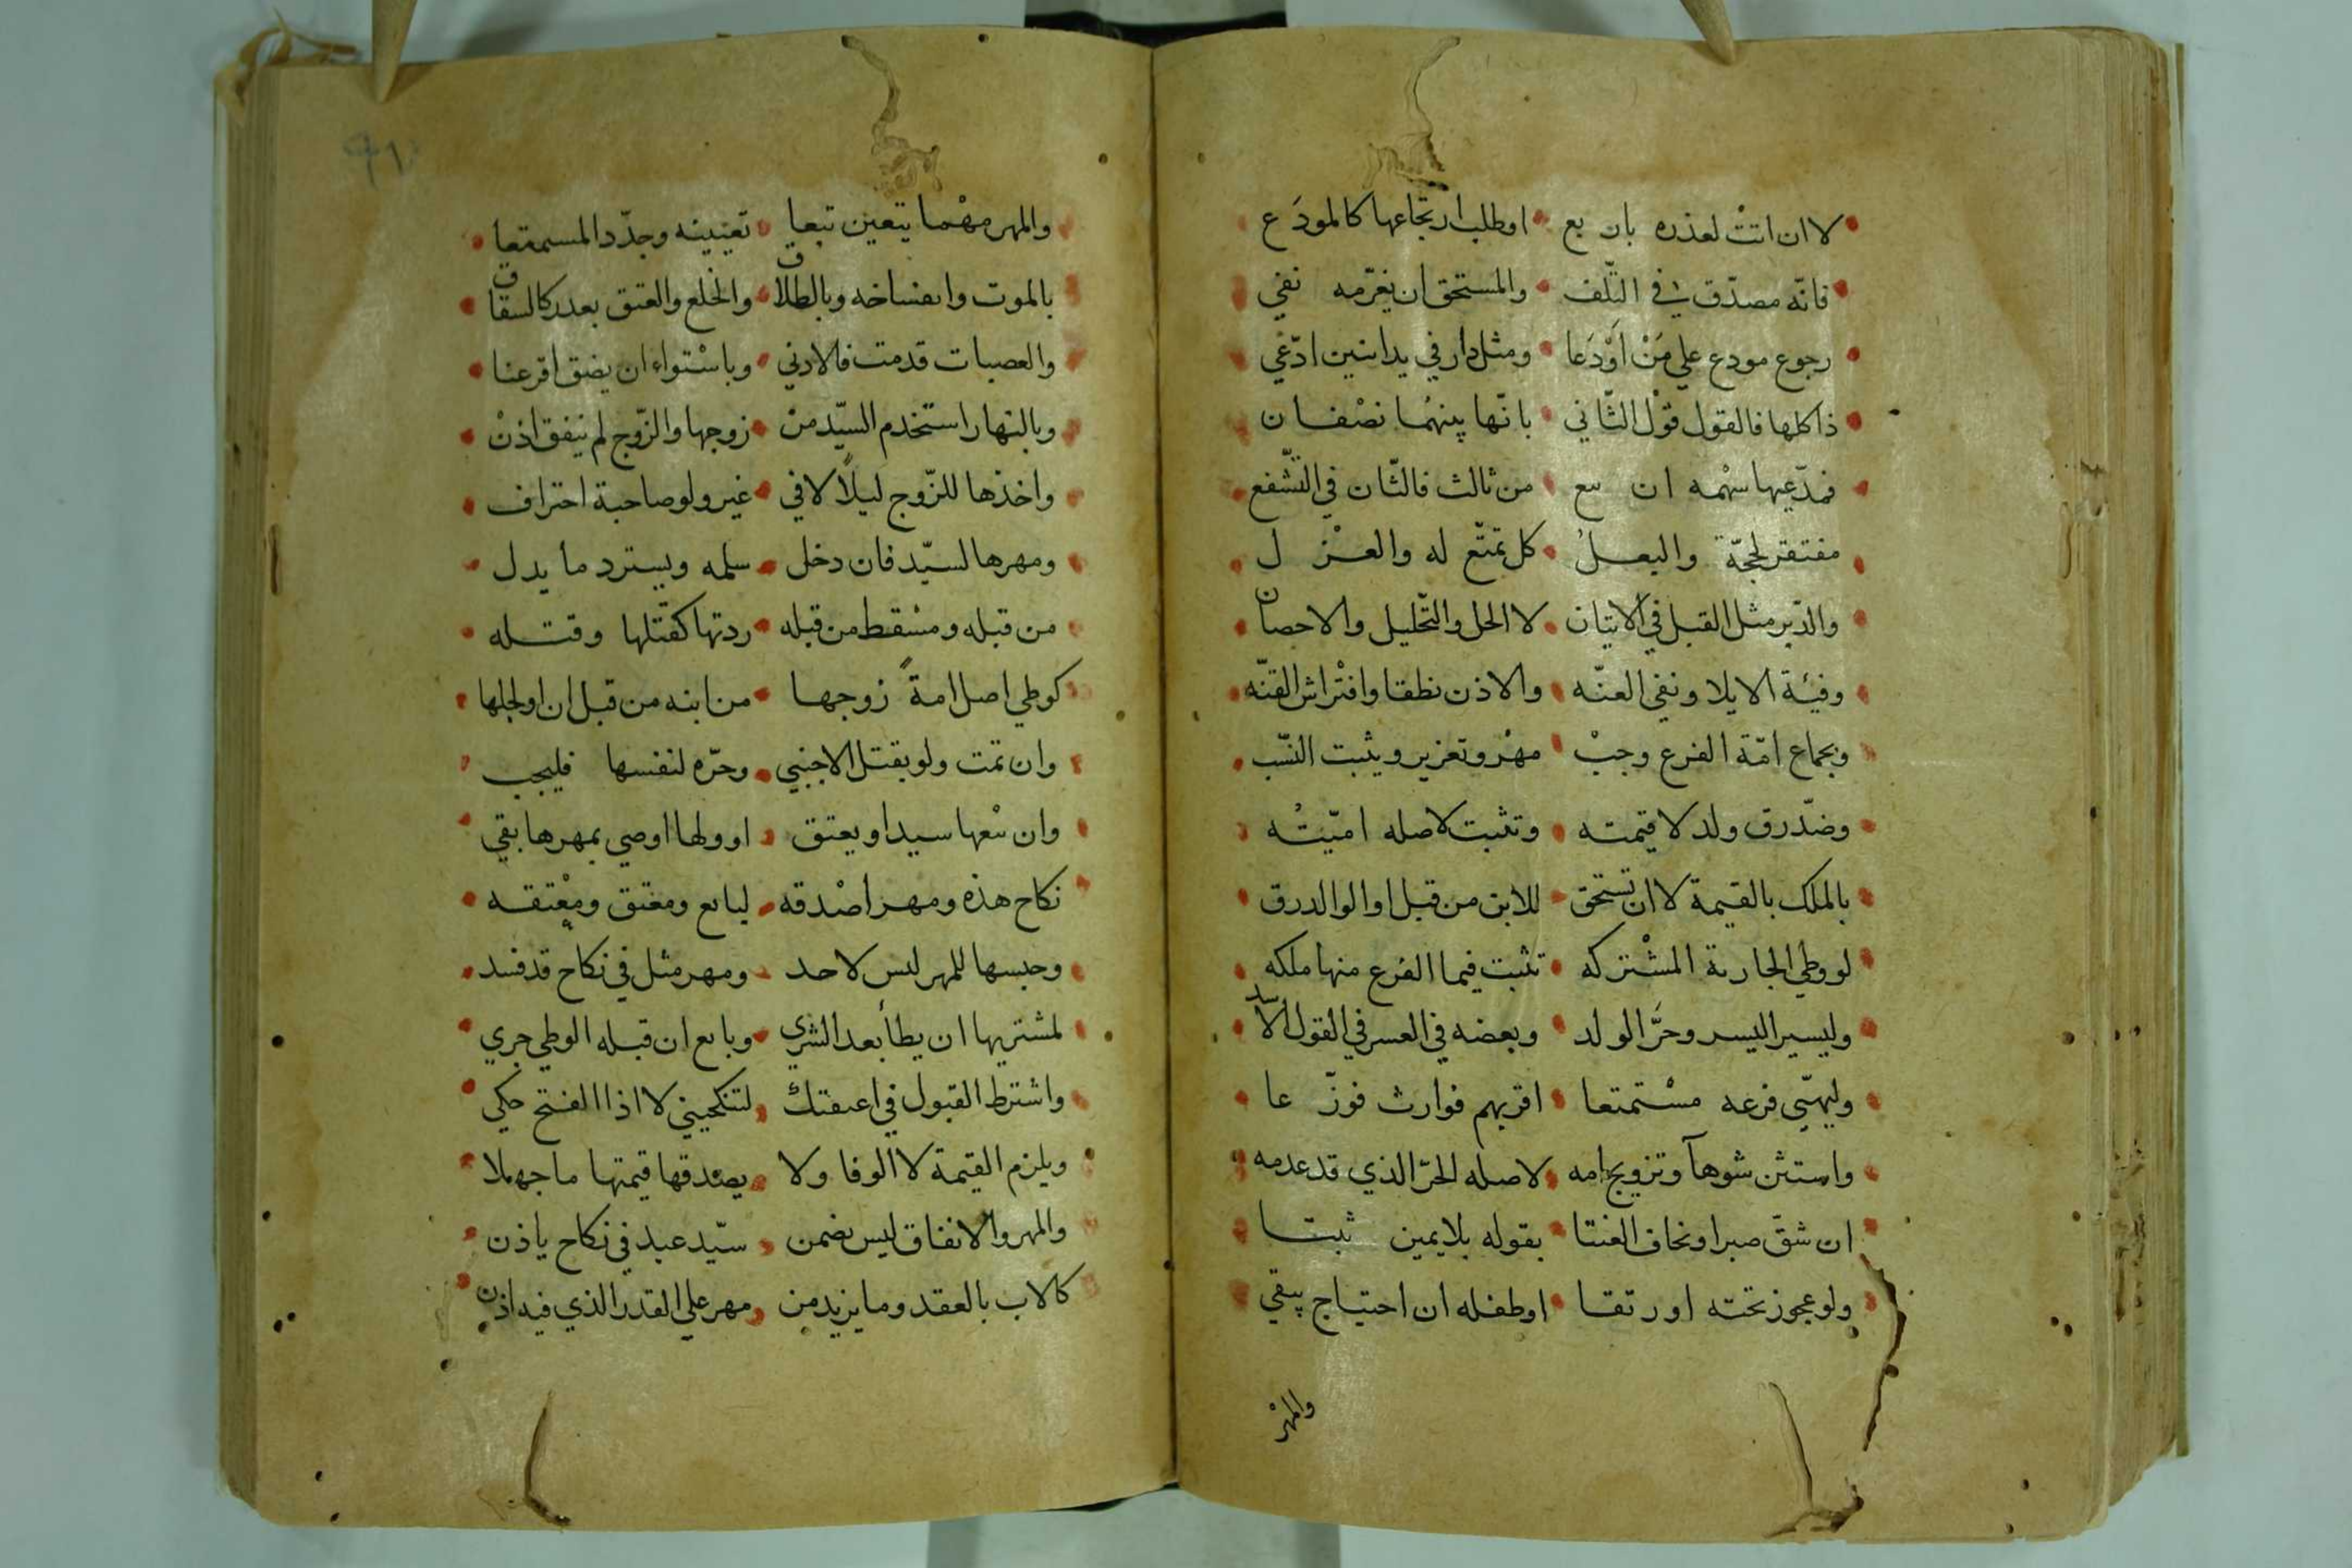 لا ان اتت لعذره بان بع اوطلب ارتجاعها كالمودَع
فانّه مصدّق في التّلف والمستحق ان يغرّمه نفي
رجوع مودع علي مَنْ اَوْدَعا ومثل دار في يد اثنين ادّعي
ذا كلها فالقول قوْل الثّاني بانّها بينهُما نصْفان
فمدّعيها سهْمه ان بيع من ثالث فالثّان في التّشفع
مفتقر لحجّة والبعلُ كل تمتّع له والعزل
والدّبر مثل القبل في الاتيان لا الحل والتّحليل والاحصان
وفيئة الايلا ونفي العنّه والاذن نطقا وافتْراش القنّه
وبجماع امّة الفرع وجبْ مهْر وتعزير ويثبت النسّب
وضدّ رق ولد لا قيمته وتثبت لاصله اميّتُه
بالملك بالقيمة لا ان تستحق للابن من قبل او الوالد رق
لو وطي الجارية المشْتركه تثبت فيما الفرع منها ملكه
وليسير اليسر وحرَّ الولد وبعضه في العسر في القول الاسد
وليهيّي فرعه مسْتمتعا اقربهم فوارث فوزّعا
واستثن شوهآ وتزويج امه لاصله الحرّ الذي قد عدمه
ان شقّ صبر او نخاف العنتا بقوله بلا يمين ثبتا
ولو عجوز تحته او رتقا او طفله ان احتياج يبقي
والمهْر
٩١
والمهر مهْما يتعين تبعا تعيينه وجدّد المستمتعا
بالموت وانفساخه وبالطلاق والخلع والعتق بعدر كالسقاق
والعصبات قدمت فالادني وباسْتواء ان يضق اقرعنا
وبالنهار استخدم السيّد من زوجها والزّوج لم ينفق اذنْ
واخذها للزّوج ليلاً لا في غير ولو صاحبة احتراف
ومهرها لسيّد فان دخل سلمه ويسترد ما بدل
من قبله ومسْقط من قبله ردتها كقتلها وقتله
كوطي اصل امةً زوجها من ابنه من قبل ان اولجلها
وان تمت ولو بقتل الاجنبي وحرّه لنفسها فليجب
وان نبْعها سيد او يعتق او ولها اوصي بمهرها بقي
نكاح هذه ومهر اصْدقه لبايع ومعتق ومعْتقه
وحبسها للمهر ليس لاحد ومهر مثل في نكاح قد فسد
لمشتريها ان يطأ بعد الشري وبايع ان قبله الوطي جري
واشترط القبول في اعتقتك لتنكحيني لا اذا الفتح حكي
ويلزم القيمة لا الوفا ولا يصْدقها قيمتها ما جهلا
والمهر والانفاق ليس يضمن سيّد عبد في نكاح ياذن
كالاب بالعقد وما يزيد من مهر علي القدر الذي فيه اذن